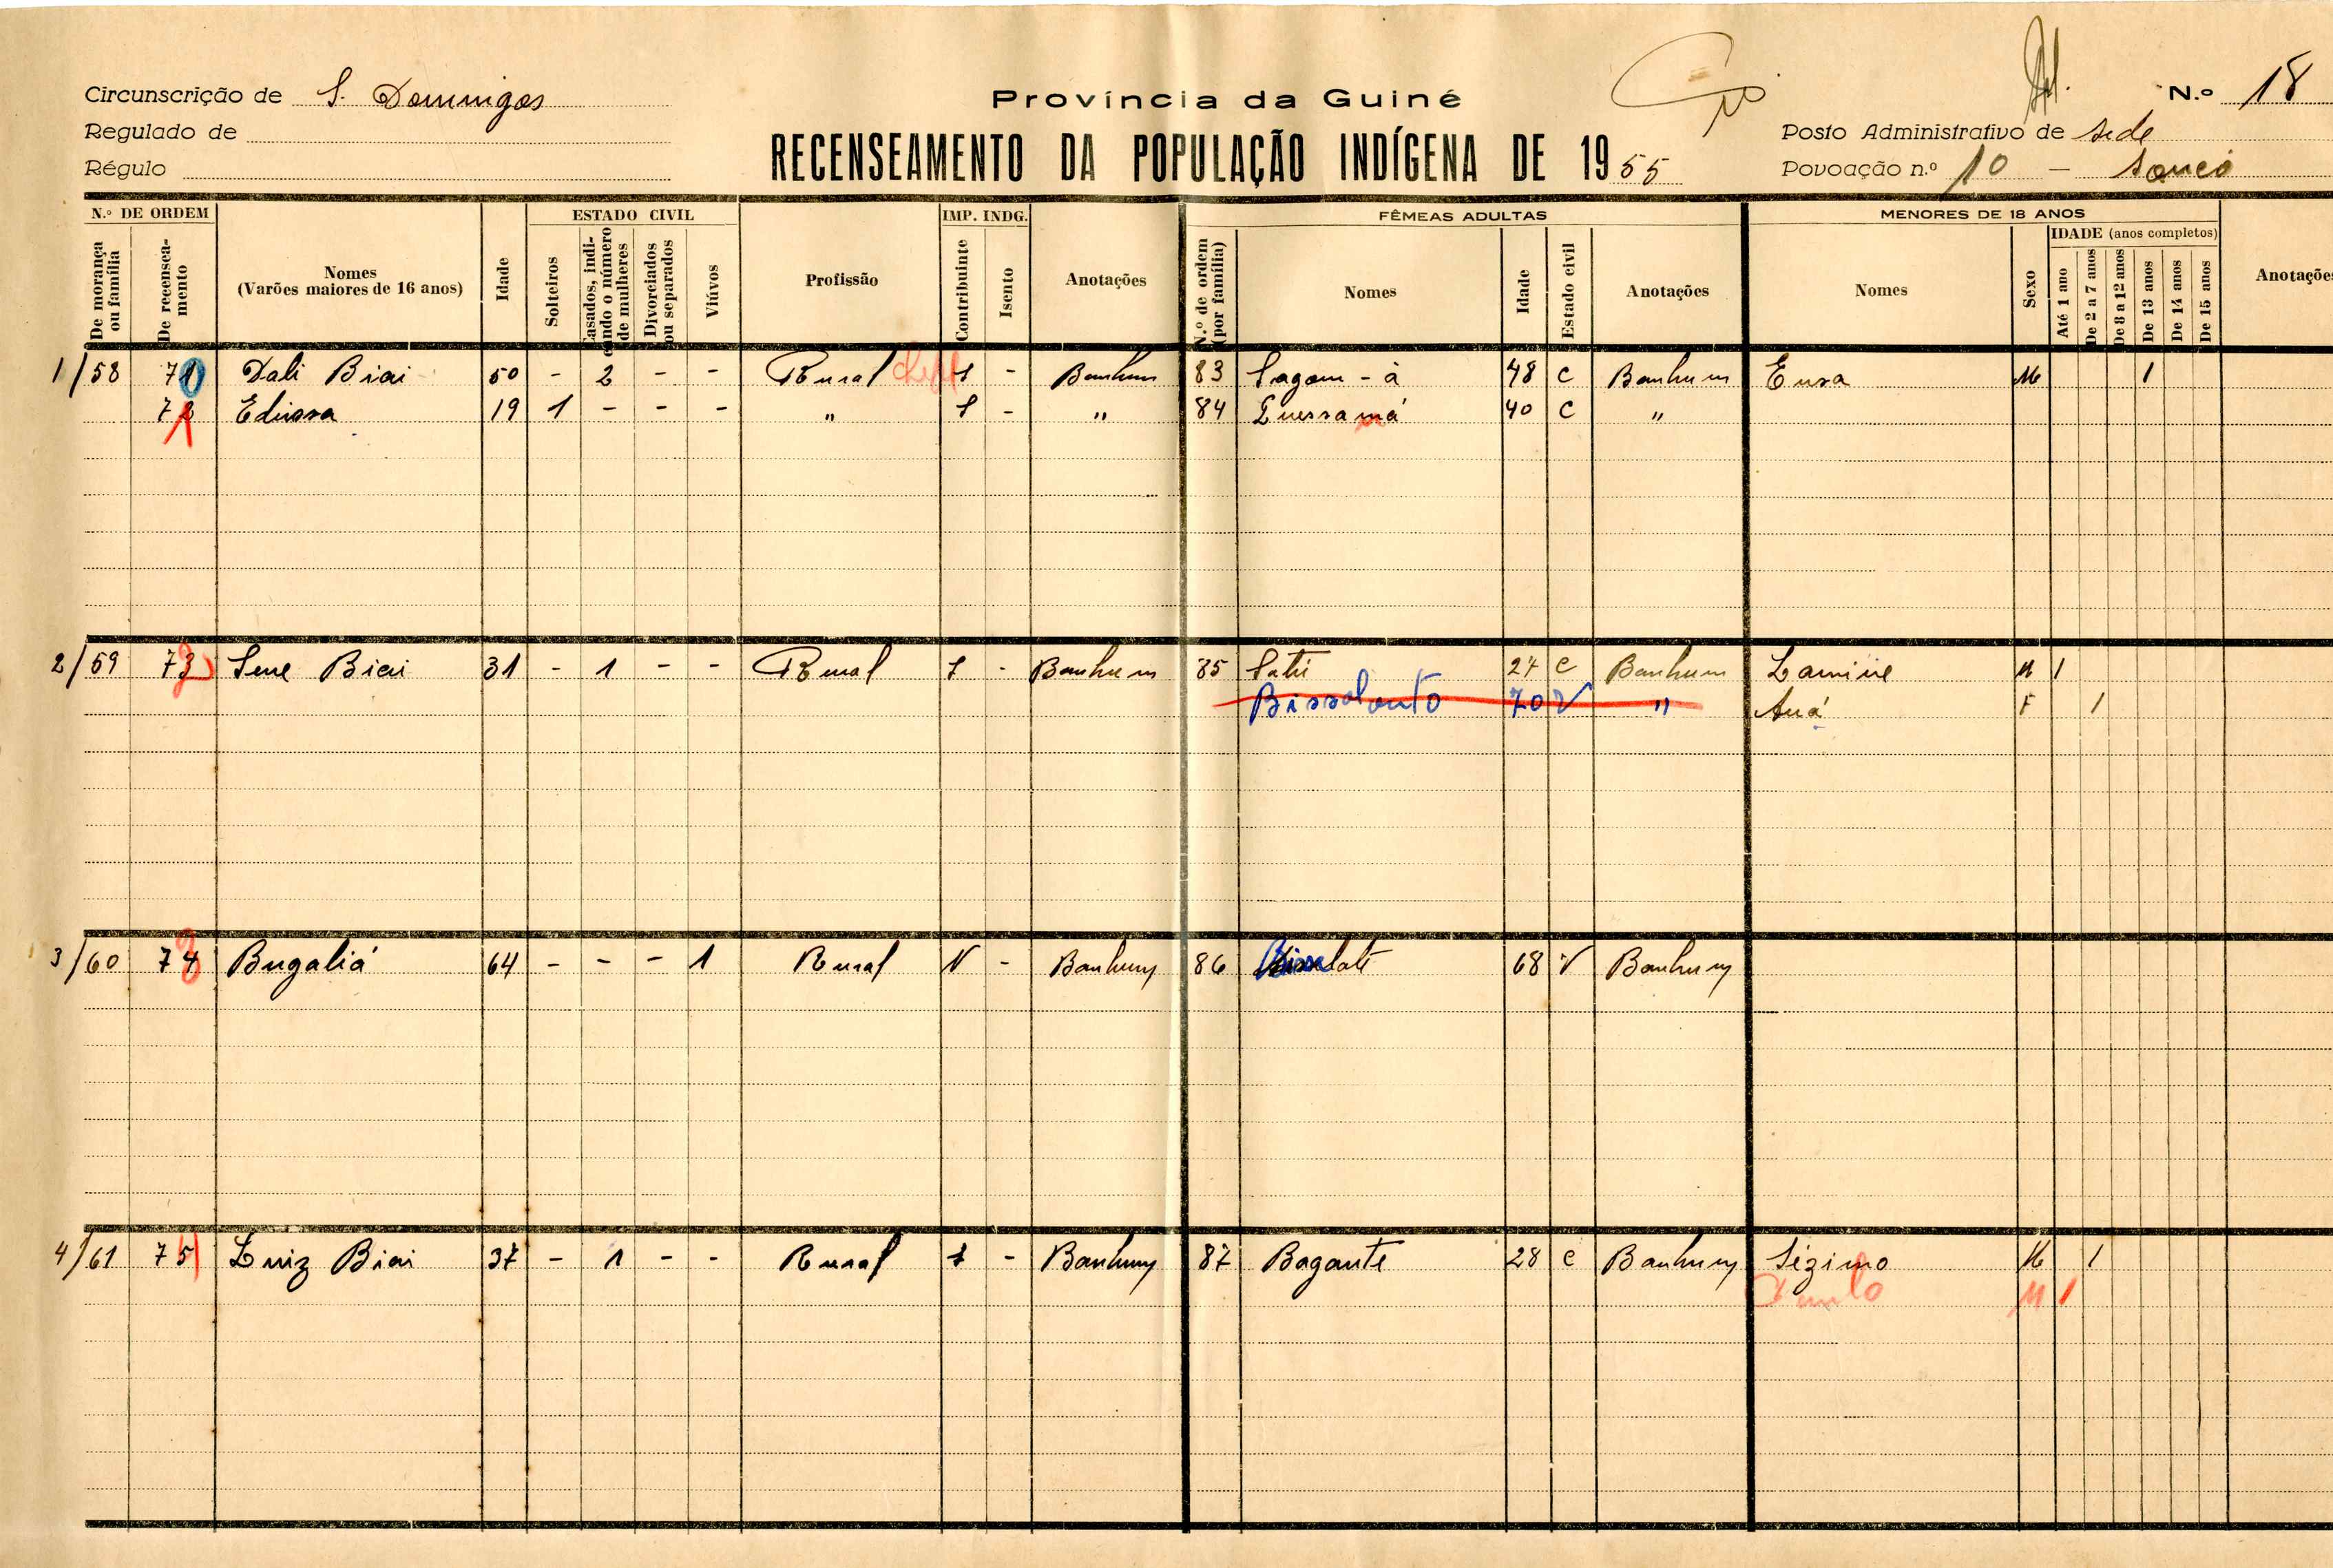 Circunscrição de S. Domingos
Regulado de
Régulo
Província da Guiné
RECENSEAMENTO DA POPULAÇÃO INDÍGENA DE 1955
N.º 18
Posto Administrativo de Sede
Povoação n.º 10 -
N.º DE ORDEM
De morança ou família
De recenseamento
Nomes
(Varões maiores de 16 anos)
Idade
ESTADO CIVIL
Solteiros
Casados, indicando o número de mulheres
Divorciados ou separados
Viúvos
Profissão
IMP. INDG.
Contribuinte
Isento
Anotações
FÊMEAS ADULTAS
N.º de ordem (por família)
Nomes
Idade
Estado civil
Anotações
MENORES DE 18 ANOS
Nomes
Sexo
IDADE (anos completos)
Até 1 ano
De 2 a 7 anos
De 8 a 12 anos
De 13 anos
De 14 anos
De 15 anos
Anotações
1/58 Dali Biai 50 - 2 - - Rural - Banhum 83 48 C Banhum M 1
19 1 - - - " - " 84 40 C "
2/59 Biai 31 - 1 - - Rural - Banhum 85 27 C Banhum Lamine M 1
Bissolonto 70 V " F 1
3/60 Bugaliá 64 - - - 1 Rural N - Banhum 86 68 V Banhum
4/61 Luiz Biai 37 - 1 - - Rural - Banhum 87 Bagante 28 C Banhum Sézimo M 1
M 1